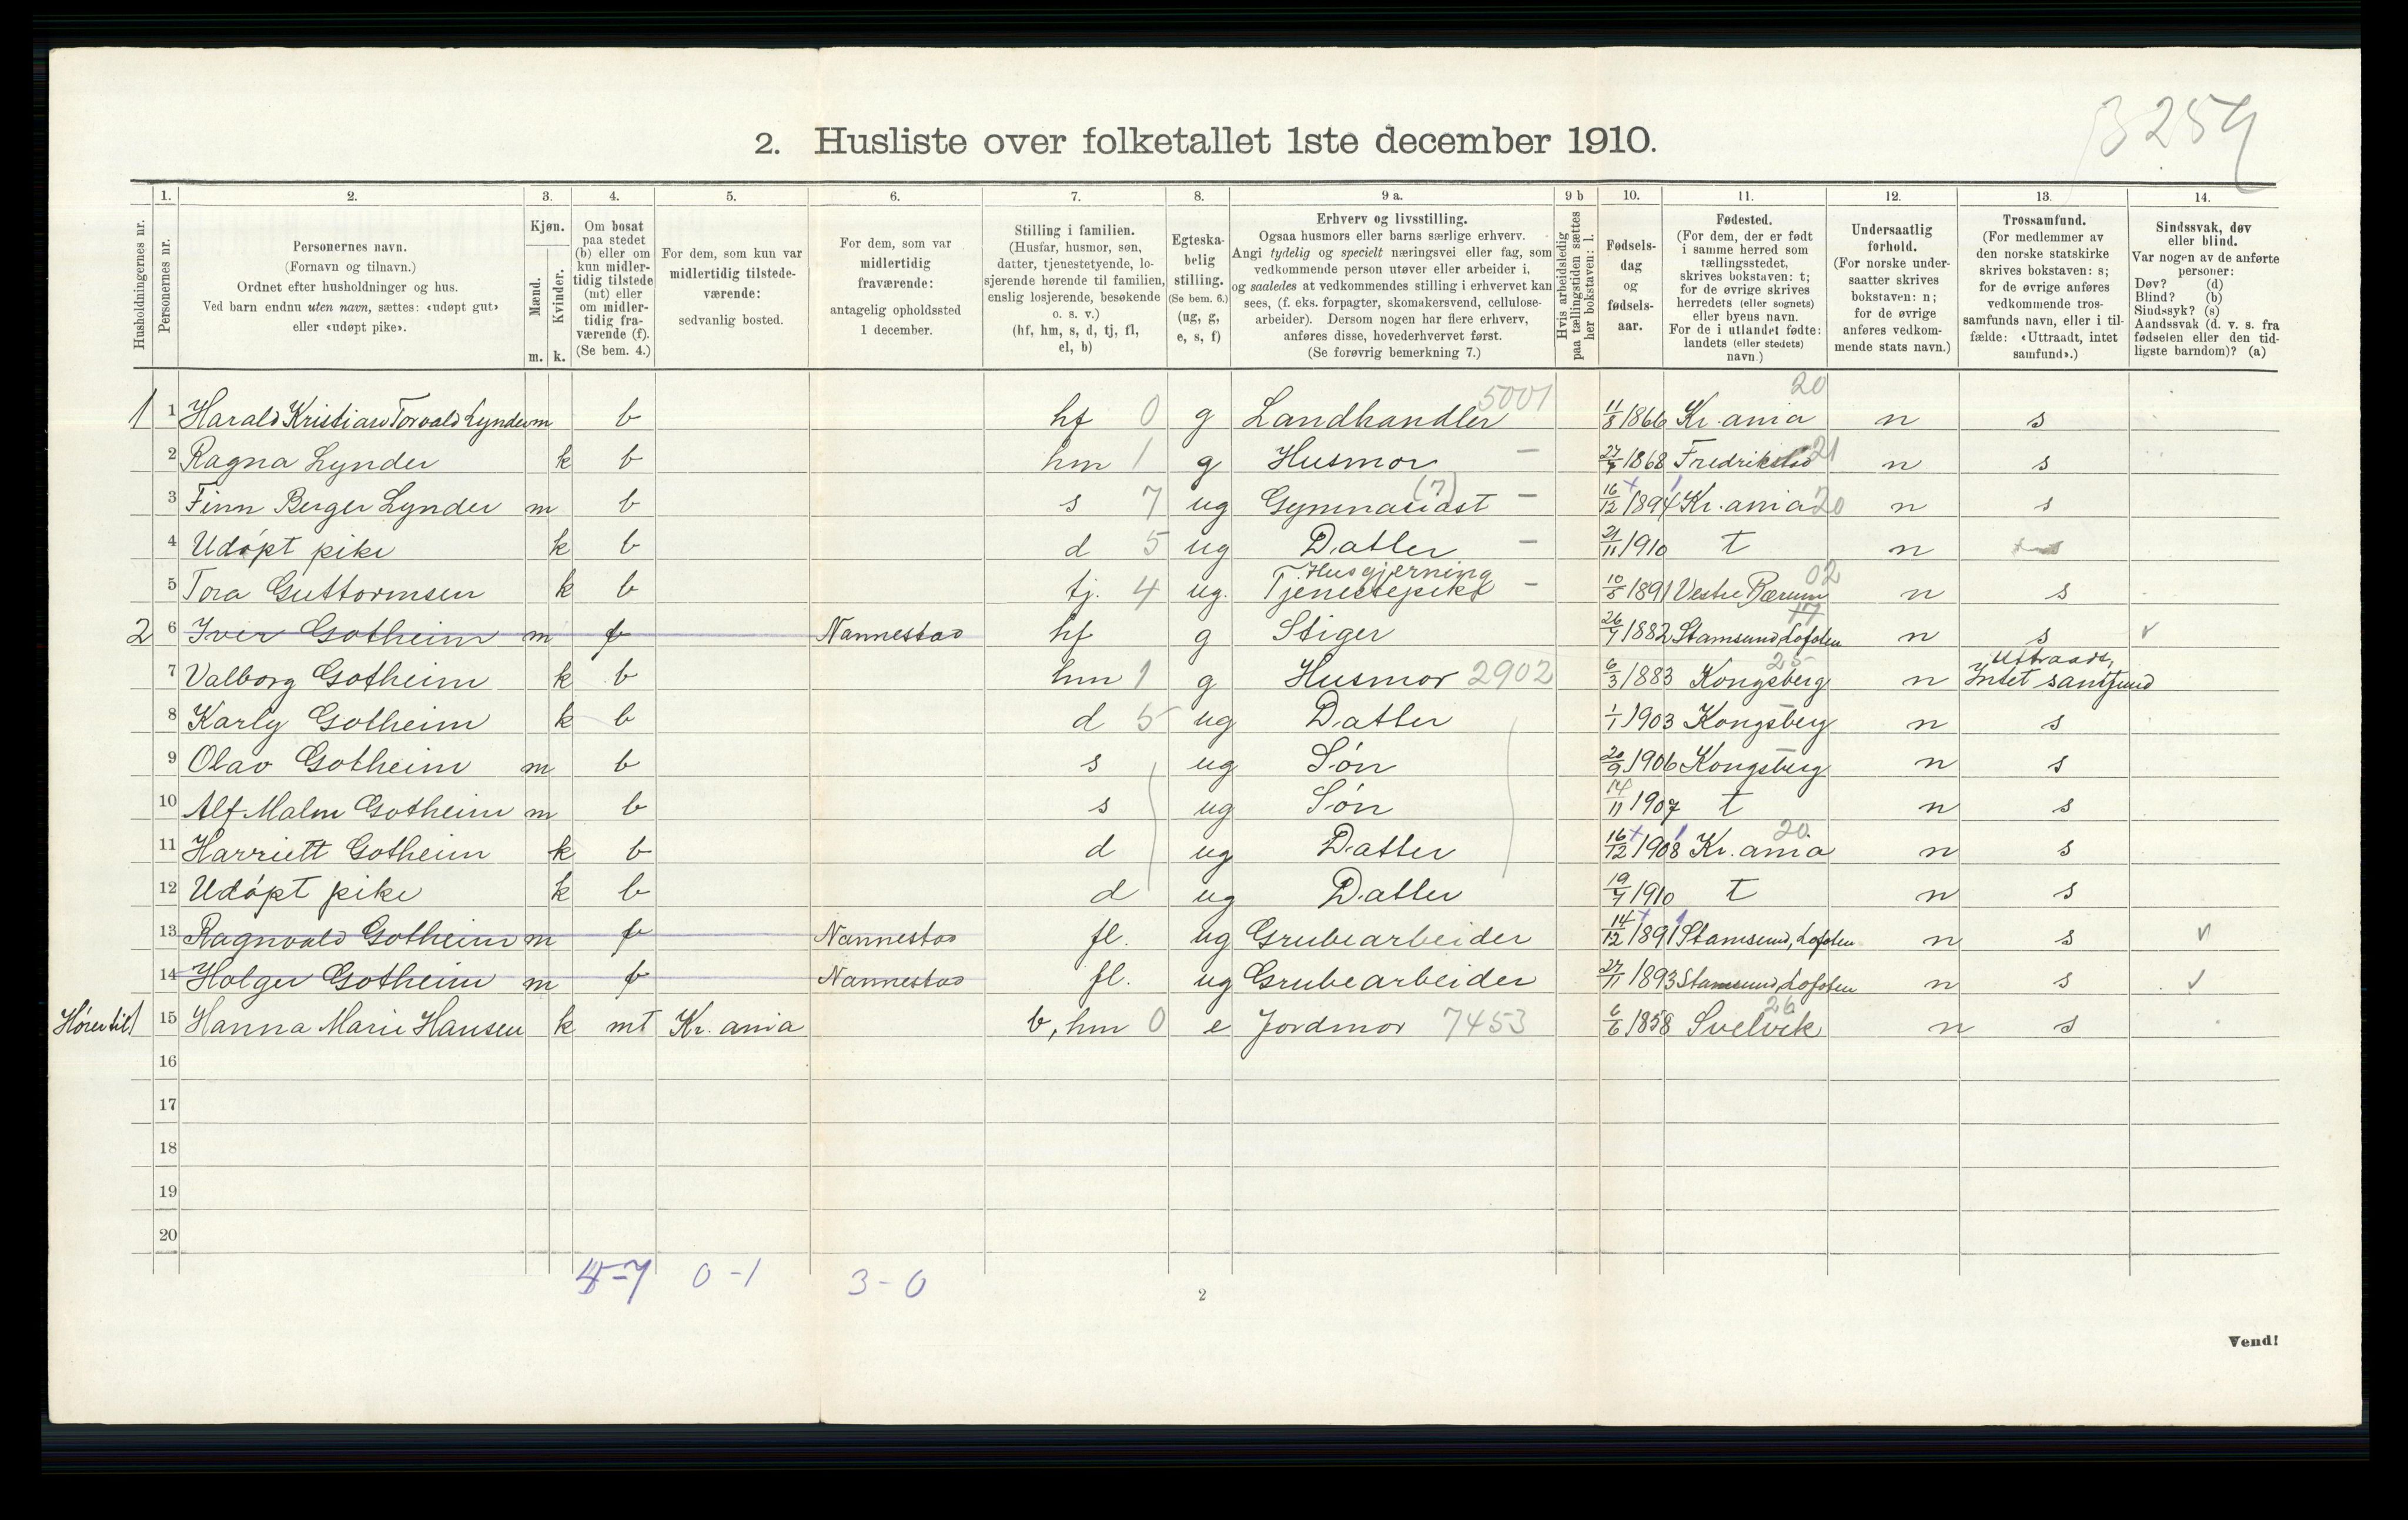 3254
2. Husliste over folketallet 1ste december 1910.
1. 2. 3. 4. 5. 6. 7. 8. 9 a. 9 b 10. 11. 12. 13. 14.
Husholdningernes nr.
Personernes nr.
Personernes navn.
(Fornavn og tilnavn.)
Ordnet efter husholdninger og hus.
Ved barn endnu uten navn, sættes: «udøpt gut»
eller «udøpt pike».
Kjøn.
Mænd.
Kvinder.
m. k.
Om bosat
paa stedet
(b) eller om
kun midler-
tidig tilstede
(mt) eller
om midler-
tidig fra-
værende (f).
(Se bem. 4.)
For dem, som kun var
midlertidig tilstede-
værende:
sedvanlig bosted.
For dem, som var
midlertidig
fraværende:
antagelig opholdssted
1 december.
Stilling i familien.
(Husfar, husmor, søn,
datter, tjenestetyende, lo-
sjerende hørende til familien,
enslig losjerende, besøkende
o. s. v.)
(hf, hm, s, d, tj, fl,
el, b)
Egteska-
belig
stilling.
(Se bem. 6.)
(ug, g,
e, s, f)
Erhverv og livsstilling.
Ogsaa husmors eller barns særlige erhverv.
Angi tydelig og specielt næringsvei eller fag, som
vedkommende person utøver eller arbeider i,
og saaledes at vedkommendes stilling i erhvervet kan
sees, (f. eks. forpagter, skomakersvend, cellulose-
arbeider). Dersom nogen har flere erhverv,
anføres disse, hovederhvervet først.
(Se forøvrig bemerkning 7.)
Hvis arbeidsledig
paa tællingstiden sættes
her bokstaven: l.
Fødsels-
dag
og
fødsels-
aar.
Fødested.
(For dem, der er født
i samme herred som
tællingsstedet,
skrives bokstaven: t;
for de øvrige skrives
herredets (eller sognets)
eller byens navn.
For de i utlandet fødte:
landets (eller stedets)
navn.)
Undersaatlig
forhold.
(For norske under-
saatter skrives
bokstaven: n;
for de øvrige
anføres vedkom-
mende stats navn.)
Trossamfund.
(For medlemmer av
den norske statskirke
skrives bokstaven: s;
for de øvrige anføres
vedkommende tros-
samfunds navn, eller i til-
fælde: «Uttraadt, intet
samfund».)
Sindssvak, døv
eller blind.
Var nogen av de anførte
personer:
Døv? (d)
Blind? (b)
Sindssyk? (s)
Aandssvak (d. v. s. fra
fødselen eller den tid-
ligste barndom)? (a)
5001 20
1 1 Harald Kristian Torvald Lynder m b hf 0 g Landhandler 11/8 1866 Kr. ania n s
2 Ragna Lynder k b hm 1 g Husmor — 27/7 1868 Fredrikstad 21 n s
3 Finn Berger Lynder m b s 7 ug Gymnasiast (7) — 16/12 1894 Kr. ania 20 n s
4 Udøpt pike k b d 5 ug Datter — 21/11 1910 t n
Husgjerning 02
5 Tora Guttormsen k b tj. 4 ug. Tjenestepike — 10/8 1891 Vestre Bærum n s
2 6 Iver Gotheim m f Nannestad hf g Stiger 26/7 1882 Stamsund, Lofoten n s v
25 Uttraadt,
7 Valborg Gotheim k b hm 1 g Husmor 2902 6/3 1883 Kongsberg n Intet samfund
8 Karly Gotheim k b d 5 ug Datter 1/1 1903 Kongsberg n s
9 Olav Gotheim m b s ug Søn 20/9 1906 Kongsberg n s
10 Alf Malm Gotheim m b s ug Søn 14/11 1907 t n s
11 Harriett Gotheim k b d ug Datter 16/12 1908 Kr. ania 20 n s
12 Udøpt pike k b d ug Datter 19/7 1910 t n s
13 Ragnvald Gotheim m f Nannestad fl. ug Grubearbeider 14/12 1891 Stamsund, Lofoten n s v
14 Holger Gotheim m f Nannestad fl. ug Grubearbeider 27/11 1893 Stamsund, Lofoten n s v
Hører til 1 15 Hanna Marie Hansen k mt Kr. ania b, hm 0 e Jordmor 7453 6/6 1858 Svelvik 26 n s
16
17
18
19
20
0-1 3-0
2
Vend!